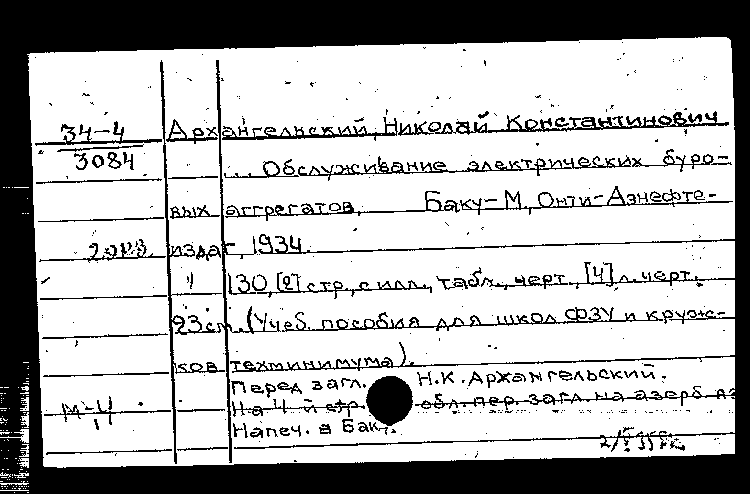 34-4 Архангельский, Николай Константинович
3084 ... Обслуживание электрических буро-
вых аггрегатов. Баку-М., Онти-Азнефте-
издат, 1934.
130, [2] стр., с илл., табл., черт., [4] л. черт.
23 см. (Учеб. пособия для школ ФЗУ и круж-
ков техминимума).
Перед загл. Н.К. Архангельский.
На 4-й стр. обл. пер. загл. на азерб. яз
Напеч. в Баку.